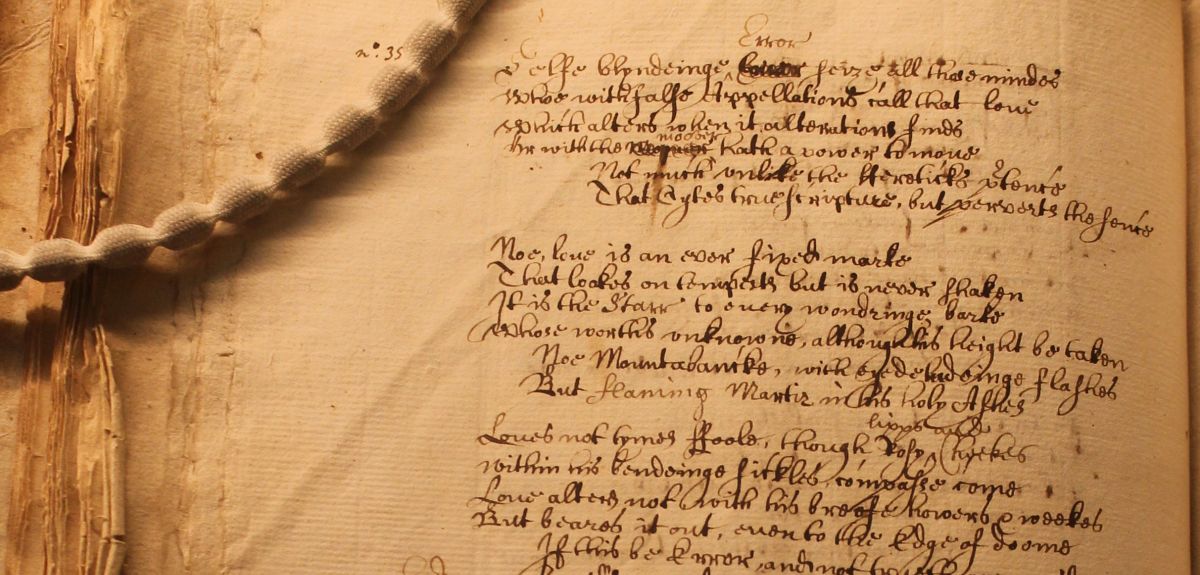 n°. 35
Error
Selfe blyndeinge seize all those mindes
Whoe with false Appellations call that love
Which alters when it alterations finds
moover
Or with the hath a power to move
Not much unlike the Hereticks ptence
That Cytes true scripture, but perverts the sence
Noe, love is an ever fixed marke
That lookes on tempests but is never shaken
It is the Starr to every wondringe barke
Whose worths unknowne, although his height be taken
Noe Mountabancke, with eyedeludeinge flashes
But flaming Martir in his holy Ashes
lipps and
Loves not tymes ffoole, though Rosy Cheekes
within his bendeinge sickles compasse come
Love alters not with his breefe howers & weekes
But beares it out, even to the Edge of doome
If this be Error, and not